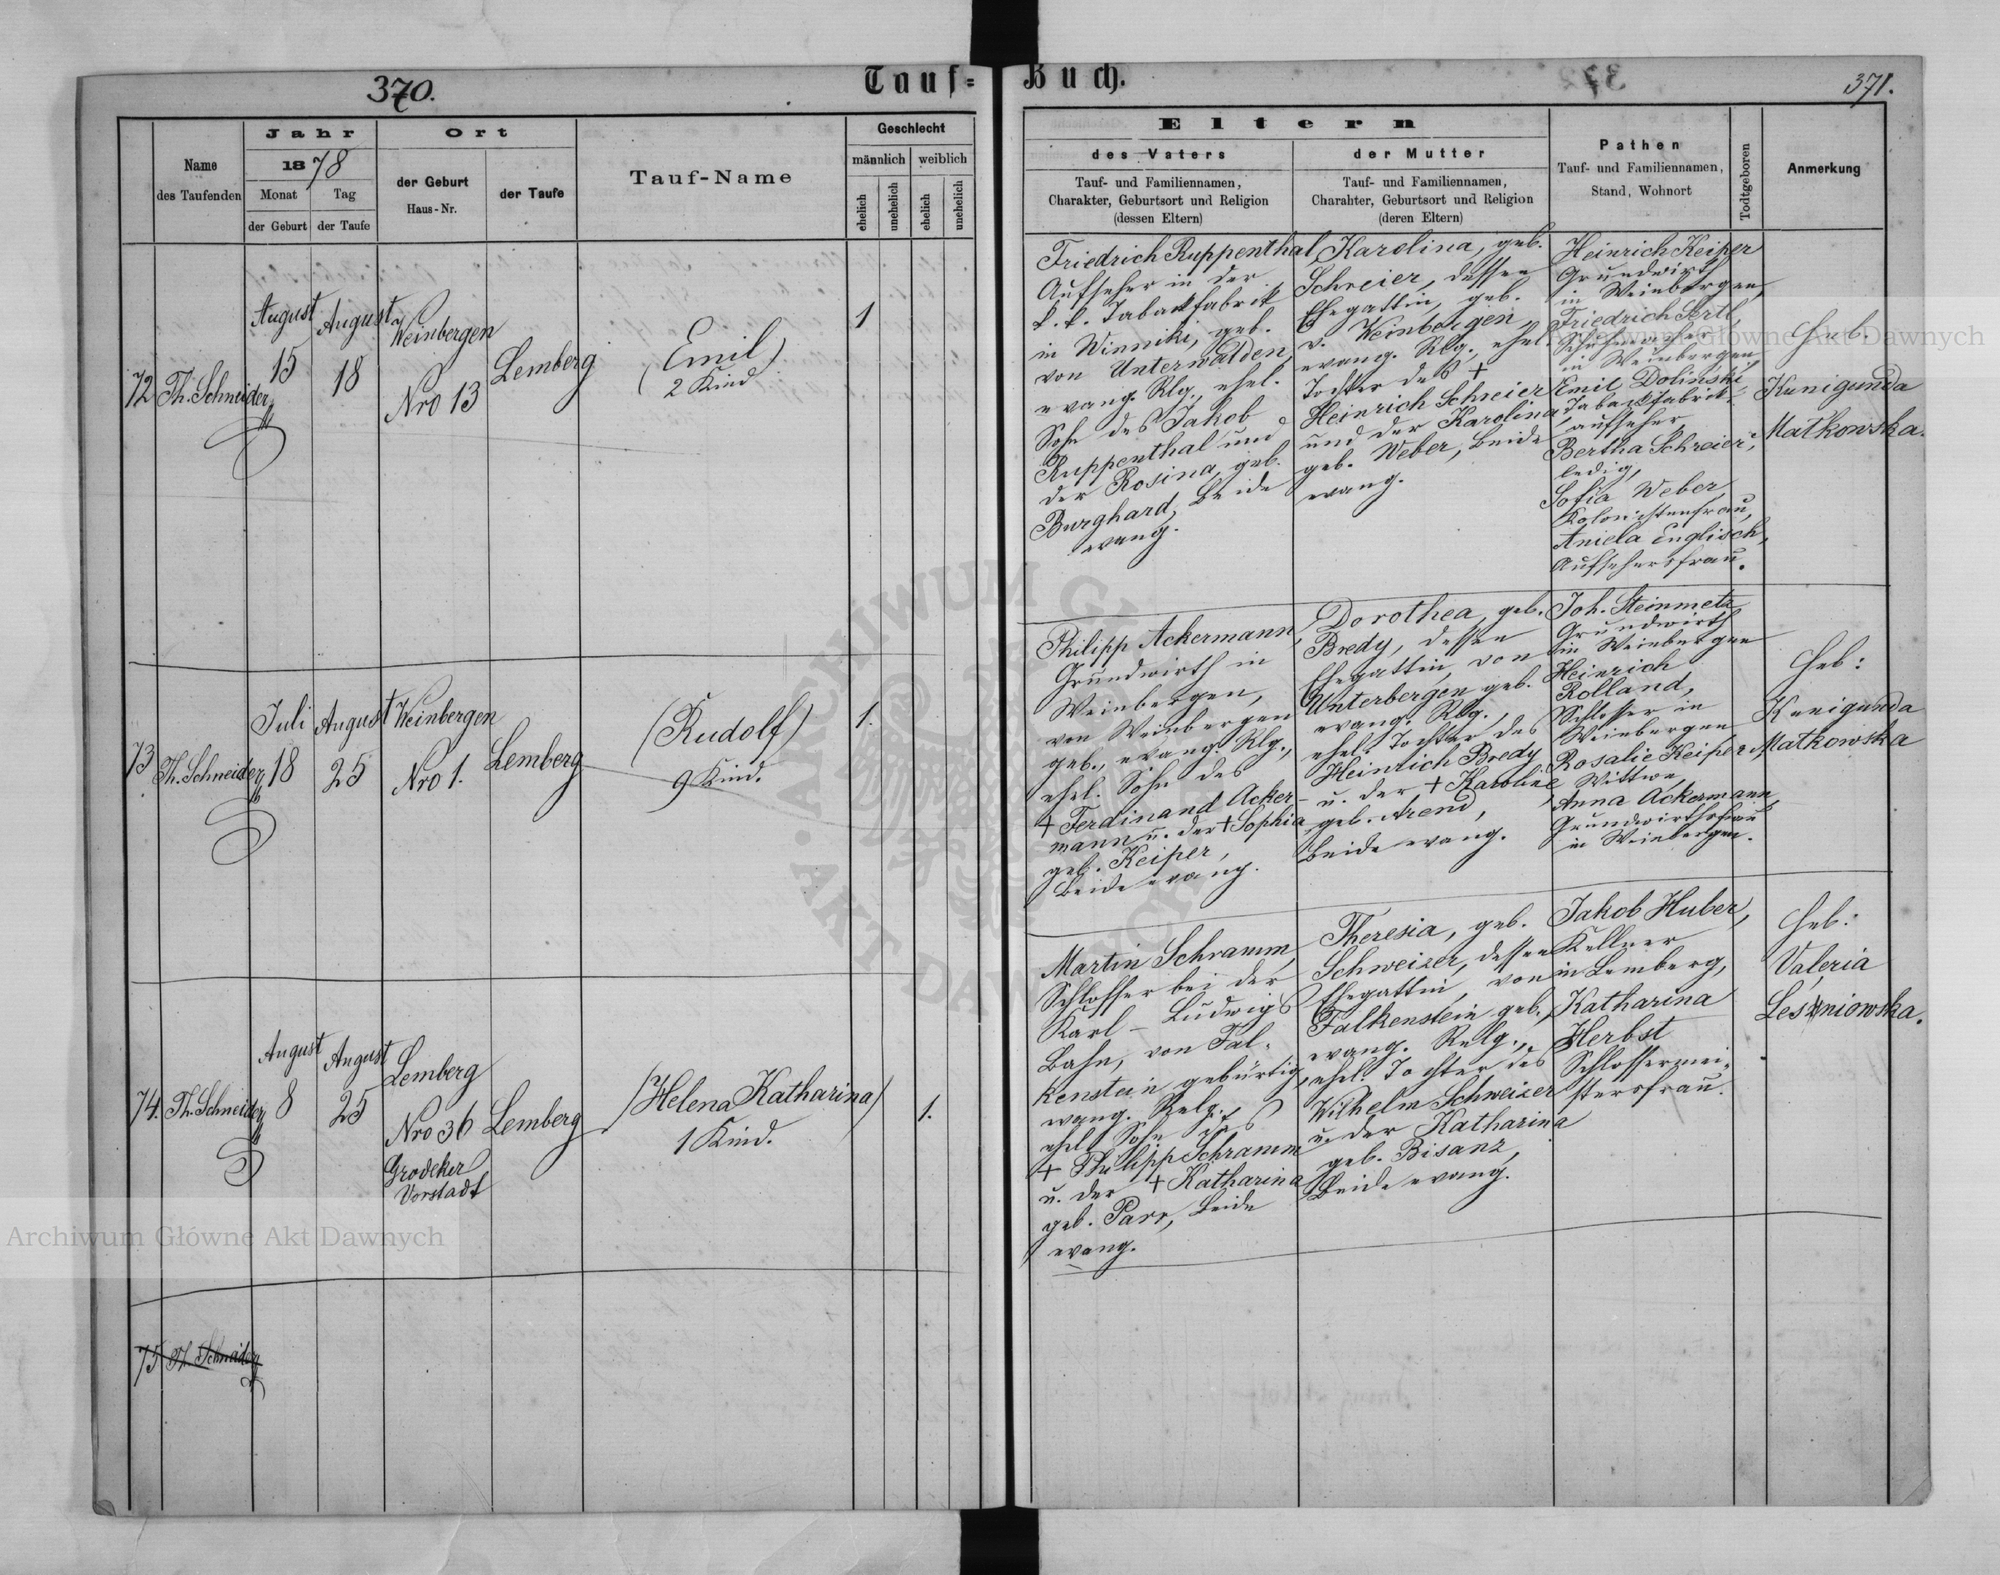 370.
Tauf=
Buch.
371.
Name
des Taufenden
Jahr
1878
Monat
Tag
der Geburt
der Taufe
Ort
der Geburt
Haus-Nr.
der Taufe
Tauf-Name
Geschlecht
männlich
weiblich
ehelich
unehelich
ehelich
unehelich
Eltern
des Vaters
Tauf- und Familiennamen,
Charakter, Geburtsort und Religion
(dessen Eltern)
der Mutter
Tauf- und Familiennamen,
Charakter, Geburtsort und Religion
(deren Eltern)
Pathen
Tauf- und Familiennamen,
Stand, Wohnort
Todtgeboren
Anmerkung
72
Th. Schneider
August
15
August
18
Weinbergen
Nro 13
Lemberg
(Emil)
2 Kind
1
Friedrich Ruppenthal,
Aufseher in der
k. k. Tabackfabrik
in Winniki, geb.
von Unterwalden,
evang. Rlg., ehel.
Sohn des Jakob
Ruppenthal und
der Rosina, geb.
Burghard, beide
evang.
Karolina, geb.
Schreier, dessen
Ehegattin, geb.
v. Weinbergen,
evang. Rlg., ehel.
Tochter des +
Heinrich Schreier
und der Karolina
geb. Weber, beide
evang.
Heinrich Keiper
Grundwirth
in Weinbergen,
Friedrich Sertl,
Schuhmacher
in Weinbergen,
Emil Doliński,
Tabackfabrik-
aufseher,
Bertha Schreier,
ledig,
Sofia Weber
Kolonistenfrau,
Aniela Englisch,
Aufsehersfrau.
Heb.
Kunigunda
Matkowska.
73
Th. Schneider
Juli
18
August
25
Weinbergen
Nro 1.
Lemberg
(Rudolf)
9 Kind.
1.
Philipp Ackermann,
Grundwirth in
Weinbergen,
von Weinbergen
geb., evang. Rlg.,
ehel. Sohn des
+ Ferdinand Acker-
mann u. der + Sophia
geb. Keiper,
beide evang.
Dorothea, geb.
Bredy, dessen
Ehegattin, von
Unterbergen geb.
evang. Rlg.,
ehel. Tochter des
Heinrich Bredy
u. der + Karoline
geb. Arend,
beide evang.
Joh. Steinmetz
Grundwirth
in Weinbergen
Heinrich
Rolland,
Schlosser in
Weinbergen
Rosalie Keiper
Wittwe,
Anna Ackermann,
Grundwirthsfrau
in Weinbergen.
Heb:
Kunigunda
Matkowska
74.
Th. Schneider
August
8
August
25
Lemberg
Nro 36
Grodeker
Vorstadt
Lemberg
(Helena Katharina)
1 Kind.
1.
Martin Schramm,
Schlosser bei der
Karl-Ludwigs
Bahn, von Fal-
kenstein gebürtig,
evang. Relg.,
ehel. Sohn des
+ Philipp Schramm
u. der + Katharina
geb. Parr, beide
evang.
Theresia, geb.
Schweizer, dessen
Ehegattin, von
Falkenstein geb.,
evang. Relg.,
ehel. Tochter des
Wilhelm Schweizer
u. der Katharina
geb. Bisanz,
beide evang.
Jakob Huber,
Kellner
in Lemberg,
Katharina
Herbst
Schlossermei-
stersfrau.
Heb:
Valeria
Leśniowska.
75
Th. Schneider
Archiwum Główne Akt Dawnych
Archiwum Główne Akt Dawnych